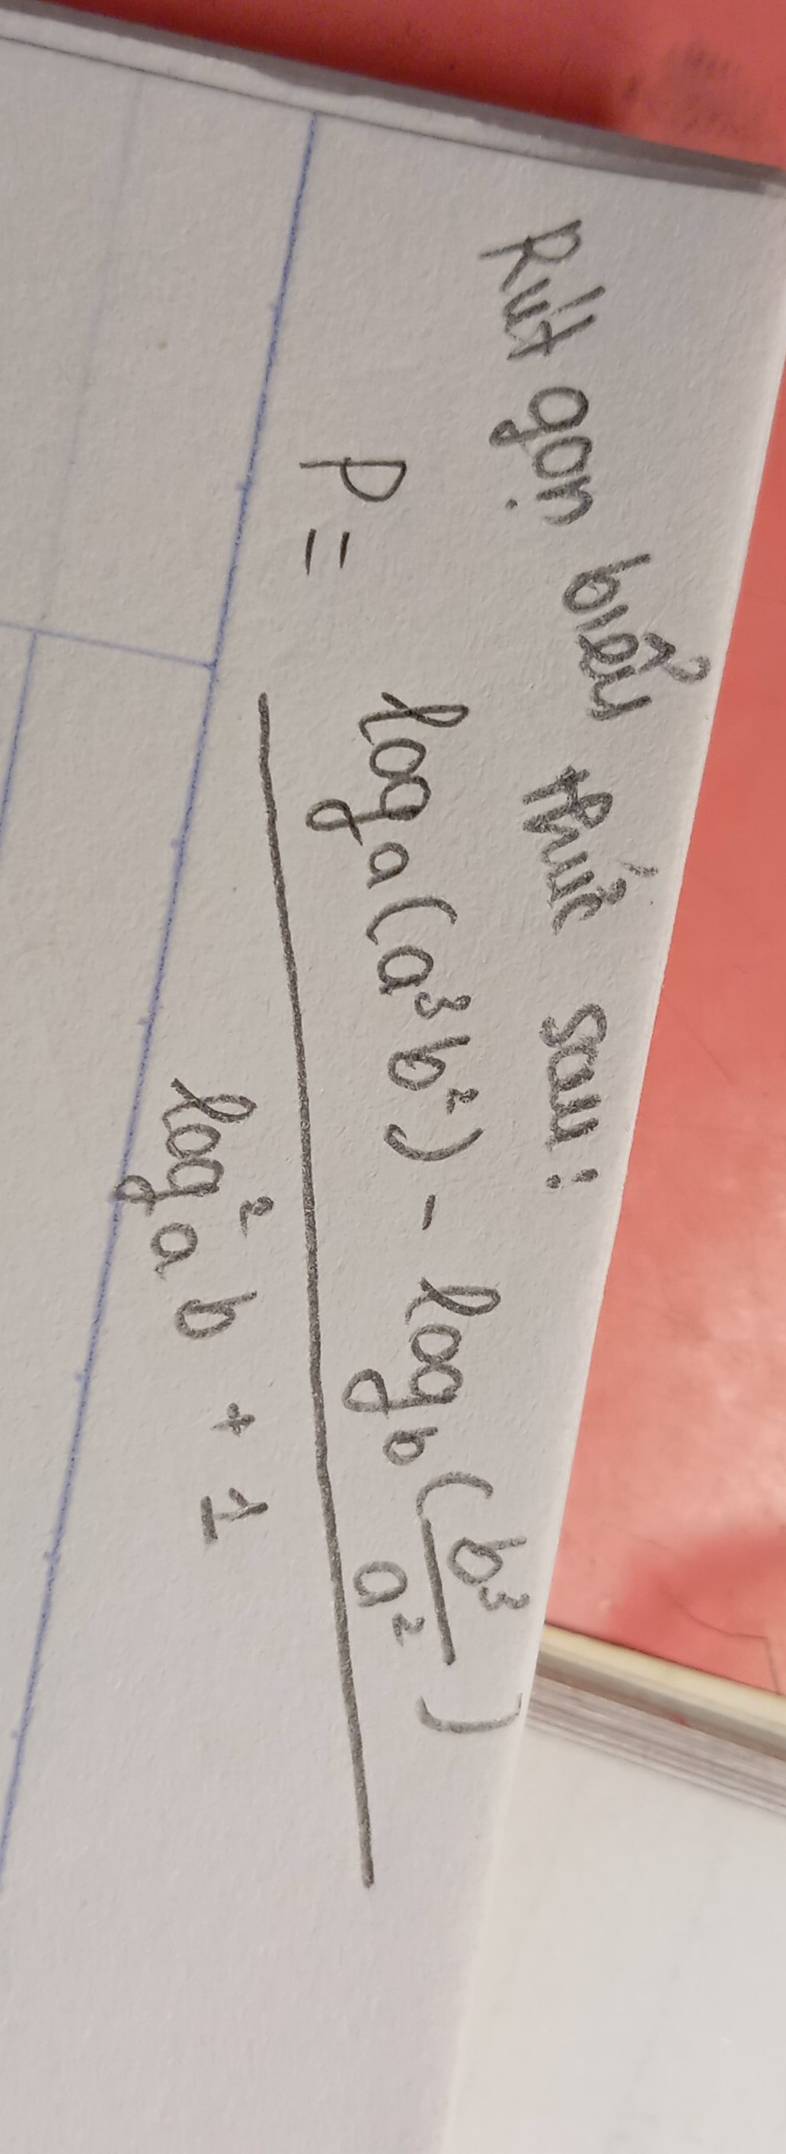 Rút gọn biểu thức sau:
P = \frac{log_a(a³b²) - log_b(\frac{b³}{a²})}{log²_a b + 1}